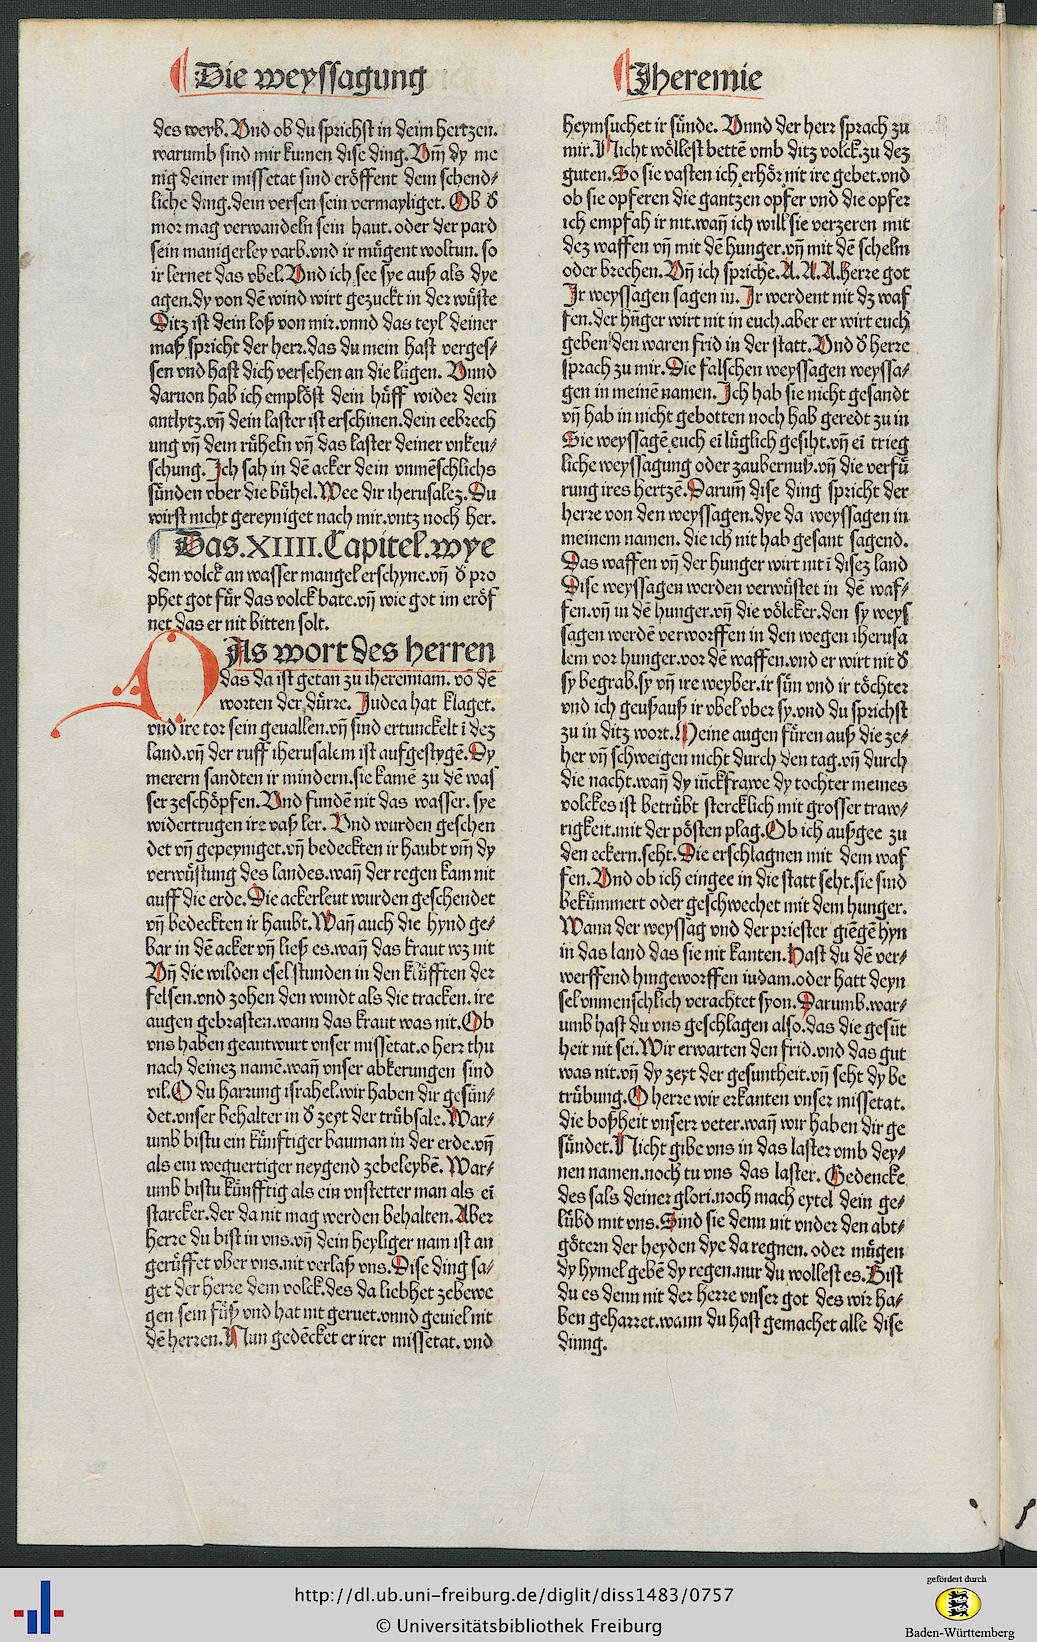 Die weyssagung
des weyb. Vnd ob du sprichst in deim hertzen.
warumb sind mir kumen dise ding. Vm̄ dy me
nig deiner missetat sind eröffent dem schend⸗
liche ding.dem versen sein vermayliget. Ob ď
mor mag verwandeln sein haut. oder der pard
sein manigerley varb.vnd ir mügent woltun. so
ir lernet das vbel. Vnd ich see sye auß als dye
agen.dy von dē wind wirt gezuckt in der wüste
Ditz ist dein loß von mir.vnnd das teyl deiner
maß spricht der herr.das du mein hast verges⸗
sen vnd hast dich versehen an die lügen. Vnnd
daruon hab ich emplöst dein hüff wider dein
antlytz.vn̄ dein laster ist erschinen.dein eebrech
ung vn̄ dein rüheln vn̄ das laster deiner vnkeu⸗
schung. Ich sah in dē acker dein vnmēschlichs
sünden vber die bühel. Wee dir iherusalez. Du
wirst nicht gereyniget nach mir.vntz noch her.
Das.XIIII.Capitel.wye
dem volck an wasser mangel erschyne.vn̄ ď pro
phet got für das volck bate.vn̄ wie got im eröf
net das er nit bitten solt.
DAs wort des herren
das da ist getan zu iheremiam. vō dē
worten der dürre. Judea hat klaget.
vnd ire tor sein geuallen.vn̄ sind ertunckelt ī dez
land.vn̄ der ruff iherusalem ist aufgestygē. Dy
merern sandten ir mindern.sie kamē zu dē was
ser zeschöpfen. Vnd fundē nit das wasser. sye
widertrugen ire vaß ler. Vnd wurden geschen
det vn̄ gepeyniget.vn̄ bedeckten ir haubt vm̄ dy
verwüstung des landes.wan̄ der regen kam nit
auff die erde. Die ackerleut wurden geschendet
vn̄ bedeckten ir haubt. Wan̄ auch die hynd ge⸗
bar in dē acker vn̄ ließ es.wan̄ das kraut wz nit
Vn̄ die wilden esel stunden in den klüfften der
felsen.vnd zohen den windt als die tracken. ire
augen gebrasten.wann das kraut was nit. Ob
vns haben geantwurt vnser missetat.o herr thu
nach deinez namē.wan̄ vnser abkerungen sind
vil. O du harrung israhel.wir haben dir gesün⸗
det.vnser behalter in ď zeyt der trübsale. War⸗
umb bistu ein künftiger bauman in der erde.vn̄
als ein weguertiger neygend zebeleybē. War⸗
umb bistu künfftig als ein vnstetter man als eī
starcker.der da nit mag werden behalten. Aber
herre du bist in vns.vn̄ dein heyliger nam ist an
gerüffet vber vns.nit verlaß vns. Dise ding sa⸗
get der herre dem volck.des da liebhet zebewe
gen sein füß vnd hat nit geruet.vnnd geuiel nit
dē herren. Nun gedēcket er irer missetat. vnd
Jheremie
heymsuchet ir sünde. Vnnd der herr sprach zu
mir. Nicht wöllest bettē vmb ditz volck.zu dez
guten. So sie vasten ich erhör nit ire gebet.vnd
ob sie opferen die gantzen opfer vnd die opfer
ich empfah ir nit.wan̄ ich will sie verzeren mit
dez waffen vn̄ mit dē hunger.vn̄ mit dē schelm
oder brechen. Vn̄ ich spriche. A. A. A. herre got
Ir weyssagen sagen in. Ir werdent nit dz waf
fen.der hūger wirt nit in euch.aber er wirt euch
geben den waren frid in der statt. Vnd ď herre
sprach zu mir. Die falschen weyssagen weyssa⸗
gen in meinē namen. Ich hab sie nicht gesandt
vn̄ hab in nicht gebotten noch hab geredt zu in
Sie weyssagē euch eī lüglich gesiht.vn̄ eī trieg
liche weyssagung oder zaubernuß.vn̄ die verfü
rung ires hertzē. Darum̄ dise ding spricht der
herre von den weyssagen.dye da weyssagen in
meinem namen. die ich nit hab gesant sagend.
Das waffen vn̄ der hunger wirt nit ī disez land
Dise weyssagen werden verwüstet in dē waf⸗
fen.vn̄ in dē hunger.vn̄ die völcker.den sy weys
sagen werdē verworffen in den wegen iherusa
lem vor hunger.vor dē waffen.vnd er wirt nit ď
sy begrab.sy vn̄ ire weyber.ir sün vnd ir töchter
vnd ich geuß auß ir vbel vber sy.vnd du sprichst
zu in ditz wort. Meine augen füren auß die ze⸗
her vn̄ schweigen nicht durch den tag.vn̄ durch
die nacht.wan̄ dy iūckfrawe dy tochter meines
volckes ist betrübt stercklich mit grosser traw⸗
rigkeit.mit der pösten plag. Ob ich außgee zu
den eckern.seht. Die erschlagnen mit dem waf
fen. Vnd ob ich eingee in die statt seht.sie sind
bekümmert oder geschwechet mit dem hunger.
Wann der weyssag vnd der priester giēgē hyn
in das land das sie nit kanten. Hast du dē ver⸗
werffend hingeworffen iudam.oder hatt deyn
sel vnmenschlich verachtet syon. Darumb.war⸗
umb hast du vns geschlagen also.das die gesūt
heit nit sei. Wir erwarten den frid.vnd das gut
was nit.vn̄ dy zeyt der gesuntheit.vn̄ seht dy be
trübung. O herre wir erkanten vnser missetat.
die boßheit vnserr veter.wan̄ wir haben dir ge
sündet. Nicht gibe vns in das laster vmb dey⸗
nen namen.noch tu vns das laster. Gedencke
des sals deiner glori.noch mach eytel dein ge⸗
lübd mit vns. Sind sie denn nit vnder den abt⸗
götern der heyden dye da regnen. oder mügen
dy hymel gebē dy regen.nur du wollest es. Bist
du es denn nit der herre vnser got des wir ha⸗
ben geharret.wann du hast gemachet alle dise
dinng.
http://dl.ub.uni-freiburg.de/diglit/diss1483/0757
© Universitätsbibliothek Freiburg
gefördert durch
Baden-Württemberg